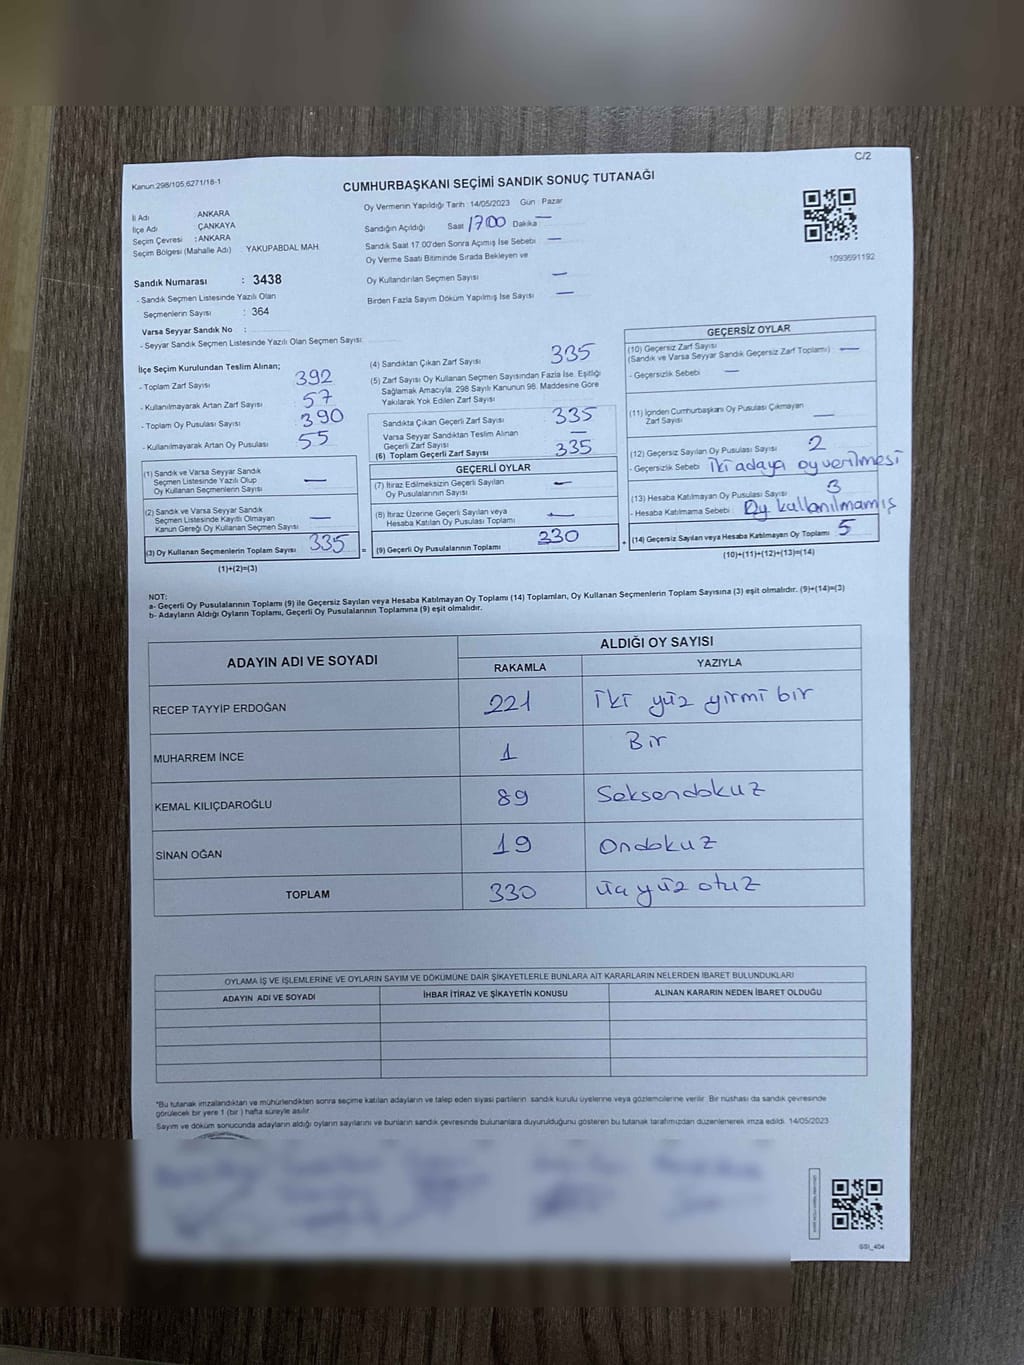 C/2
Kanun:298/105,6271/18-1
CUMHURBAŞKANI SEÇİMİ SANDIK SONUÇ TUTANAĞI
İl Adı : ANKARA
İlçe Adı : ÇANKAYA
Seçim Çevresi : ANKARA
Seçim Bölgesi (Mahalle Adı) YAKUPABDAL MAH.
Sandık Numarası : 3438
- Sandık Seçmen Listesinde Yazılı Olan
Seçmenlerin Sayısı : 364
Varsa Seyyar Sandık No :
- Seyyar Sandık Seçmen Listesinde Yazılı Olan Seçmen Sayısı:
Oy Vermenin Yapıldığı Tarih :14/05/2023 Gün Pazar
Sandığın Açıldığı Saat 17:00 Dakika —
Sandık Saat 17.00'den Sonra Açımış İse Sebebi —
Oy Verme Saati Bitiminde Sırada Bekleyen ve
Oy Kullandırılan Seçmen Sayısı —
Birden Fazla Sayım Döküm Yapılmış İse Sayısı —
1093691192
İlçe Seçim Kurulundan Teslim Alınan;
- Toplam Zarf Sayısı 392
- Kullanılmayarak Artan Zarf Sayısı 57
- Toplam Oy Pusulası Sayısı 390
- Kullanılmayarak Artan Oy Pusulası 55
(1) Sandık ve Varsa Seyyar Sandık
Seçmen Listesinde Yazılı Olup
Oy Kullanan Seçmenlerin Sayısı —
(2) Sandık ve Varsa Seyyar Sandık
Seçmen Listesinde Kayıtlı Olmayan
Kanun Gereği Oy Kullanan Seçmen Sayısı —
(3) Oy Kullanan Seçmenlerin Toplam Sayısı 335 =
(1)+(2)=(3)
(4) Sandıktan Çıkan Zarf Sayısı 335
(5) Zarf Sayısı Oy Kullanan Seçmen Sayısından Fazla İse, Eşitliği
Sağlamak Amacıyla, 298 Sayılı Kanunun 98. Maddesine Göre
Yakılarak Yok Edilen Zarf Sayısı
Sandıkta Çıkan Geçerli Zarf Sayısı 335
Varsa Seyyar Sandıktan Teslim Alınan
Geçerli Zarf Sayısı —
(6) Toplam Geçerli Zarf Sayısı 335
GEÇERLİ OYLAR
(7) İtiraz Edilmeksizin Geçerli Sayılan
Oy Pusulalarının Sayısı —
(8) İtiraz Üzerine Geçerli Sayılan veya
Hesaba Katılan Oy Pusulası Toplamı —
(9) Geçerli Oy Pusulalarının Toplamı 330 +
GEÇERSİZ OYLAR
(10) Geçersiz Zarf Sayısı
(Sandık ve Varsa Seyyar Sandık Geçersiz Zarf Toplamı) —
- Geçersizlik Sebebi —
(11) İçinden Cumhurbaşkanı Oy Pusulası Çıkmayan
Zarf Sayısı —
(12) Geçersiz Sayılan Oy Pusulası Sayısı 2
- Geçersizlik Sebebi İki adaya oy verilmesi
(13) Hesaba Katılmayan Oy Pusulası Sayısı 3
- Hesaba Katılmama Sebebi : Oy kullanılmamış
(14) Geçersiz Sayılan veya Hesaba Katılmayan Oy Toplamı 5
(10)+(11)+(12)+(13)=(14)
NOT:
a- Geçerli Oy Pusulalarının Toplamı (9) ile Geçersiz Sayılan veya Hesaba Katılmayan Oy Toplamı (14) Toplamları, Oy Kullanan Seçmenlerin Toplam Sayısına (3) eşit olmalıdır. (9)+(14)=(3)
b- Adayların Aldığı Oyların Toplamı, Geçerli Oy Pusulalarının Toplamına (9) eşit olmalıdır.
ADAYIN ADI VE SOYADI
ALDIĞI OY SAYISI
RAKAMLA YAZIYLA
RECEP TAYYİP ERDOĞAN 221 İki yüz yirmi bir
MUHARREM İNCE 1 Bir
KEMAL KILIÇDAROĞLU 89 Seksendokuz
SİNAN OĞAN 19 Ondokuz
TOPLAM 330 üç yüz otuz
OYLAMA İŞ VE İŞLEMLERİNE VE OYLARIN SAYIM VE DÖKÜMÜNE DAİR ŞİKAYETLERLE BUNLARA AİT KARARLARIN NELERDEN İBARET BULUNDUKLARI
ADAYIN ADI VE SOYADI İHBAR İTİRAZ VE ŞİKAYETİN KONUSU ALINAN KARARIN NEDEN İBARET OLDUĞU
*Bu tutanak imzalandıktan ve mühürlendikten sonra seçime katılan adayların ve talep eden siyasi partilerin sandık kurulu üyelerine veya gözlemcilerine verilir. Bir nüshası da sandık çevresinde
görülecek bir yere 1 (bir) hafta süreyle asılır.
Sayım ve döküm sonucunda adayların aldığı oyların sayılarını ve bunların sandık çevresinde bulunanlara duyurulduğunu gösteren bu tutanak tarafımızdan düzenlenerek imza edildi. 14/05/2023
GSI_404